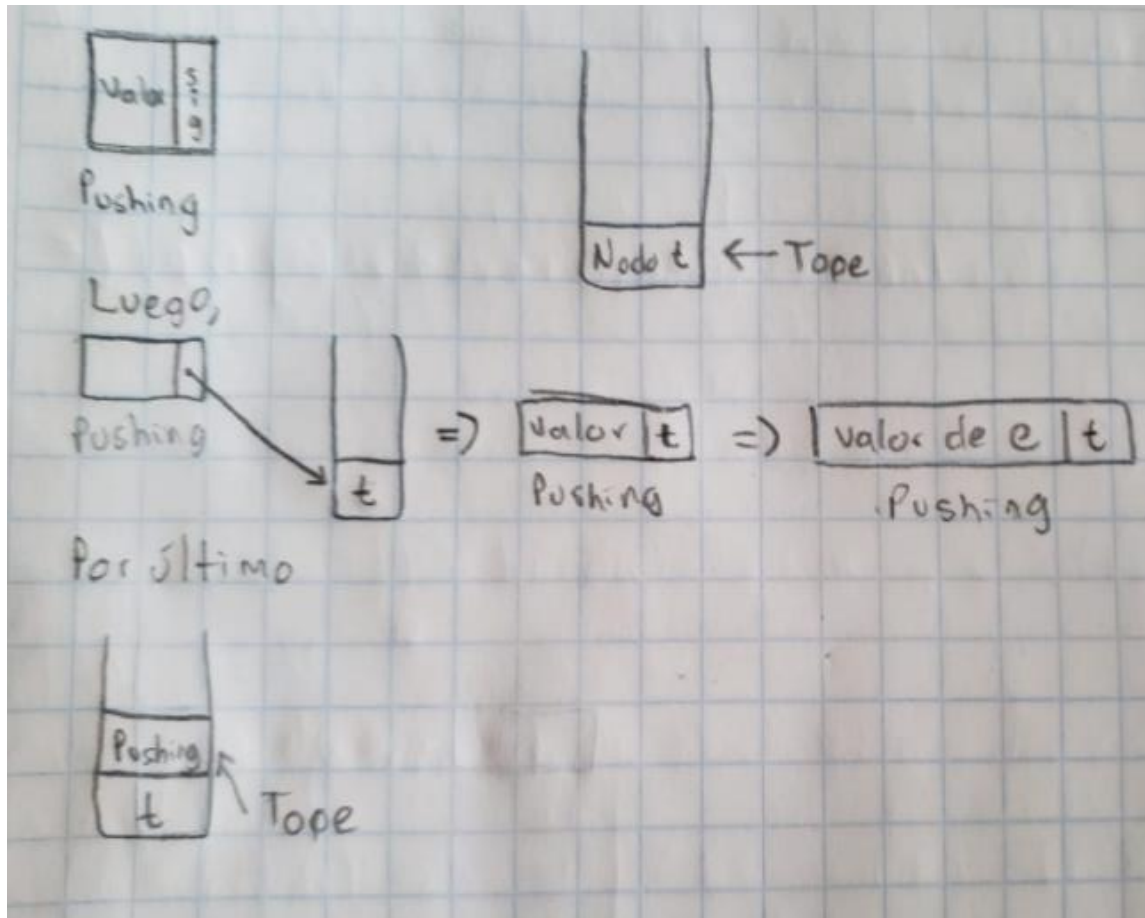 Valor sig
Pushing
Nodo t ← Tope
Luego,
Pushing
t
=> valor t => valor de e t
Pushing
Pushing
Por último
Pushing
t
Tope